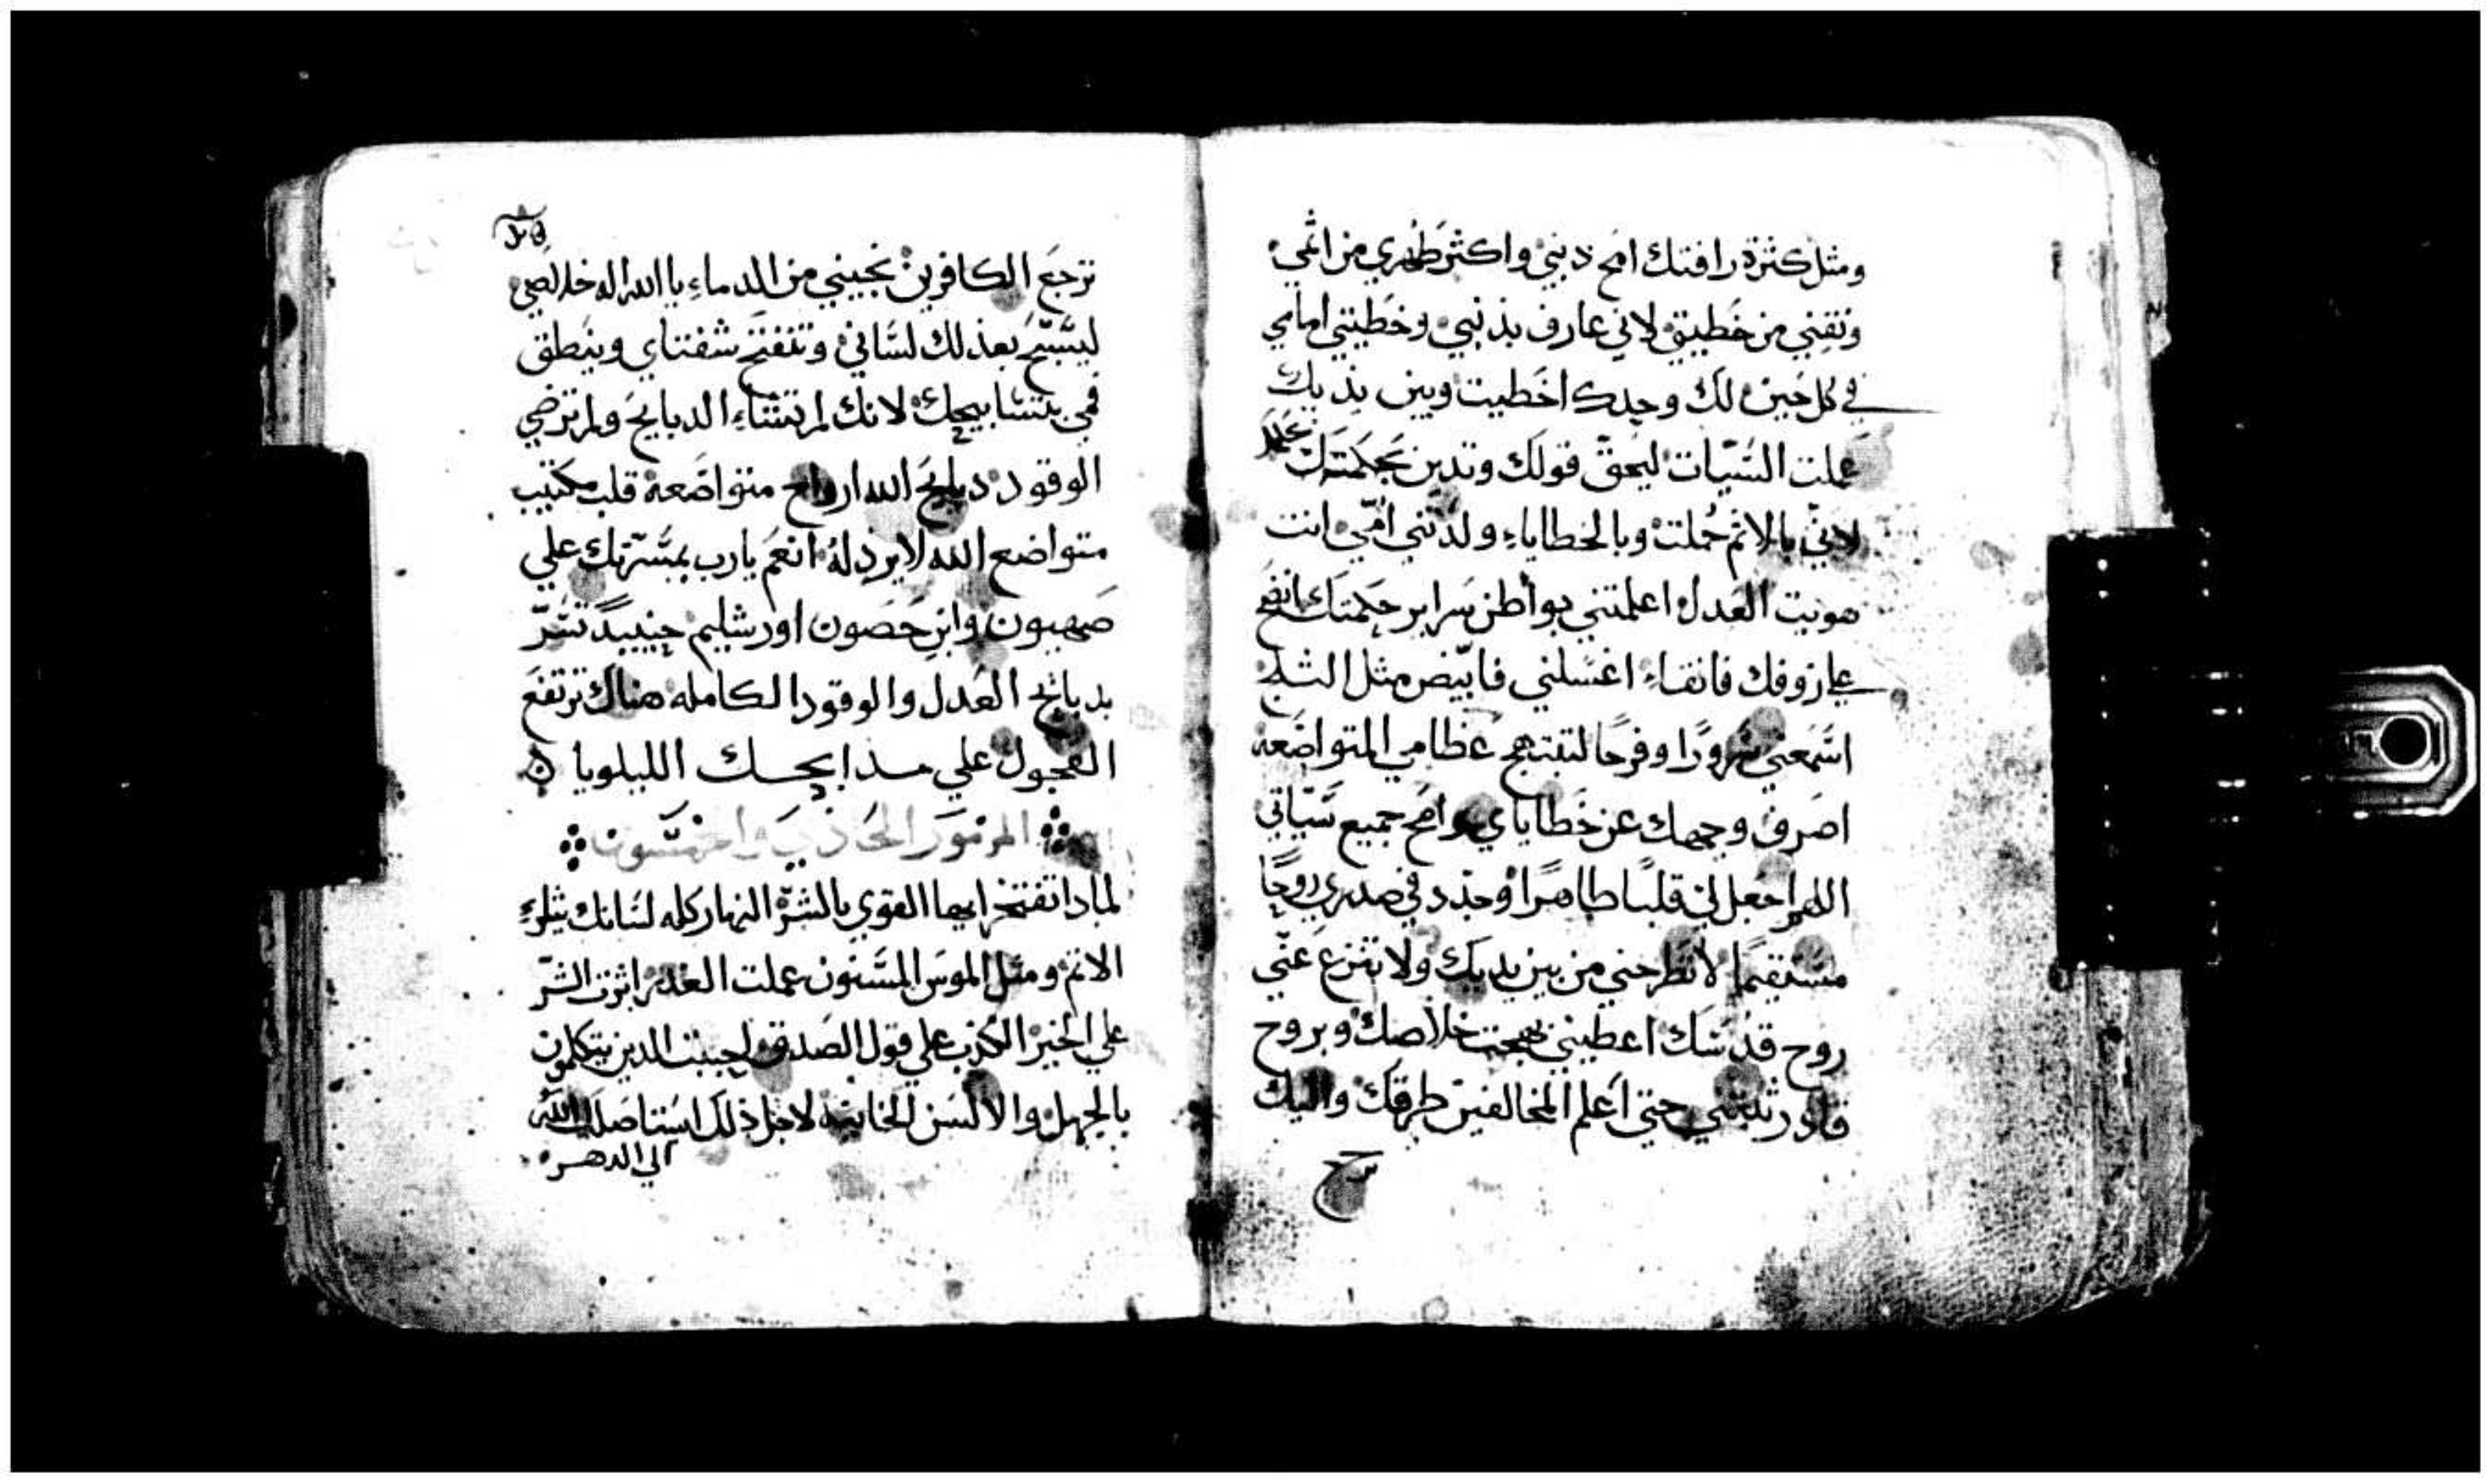 ومثل كثرة رافتك امح ذنبي واكثر طهري من اثمي
ونقني من خطيتي لاني عارف بذنبي وخطيتي امامي
في كل حين لك وحدك اخطيت وبين يديك
عملت السيات ليحق قولك وتدين بحكمتك
لاني بالاثم حملت وبالخطاياء ولدتني امي انت
هويت العدل اعلمتني بواطن سراير حكمتك انضح
علي زوفك فانقاء اغسلني فابيض مثل الثلج
اسمعني سرورا وفرحا لتبتهج عظامي المتواضعه
اصرف وجهك عن خطاياي وامح جميع سياتي
اللهم اجعل لي قلبا طاهرا وجدد في صدري روحا
مستقيما لا تطرحني من بين يديك ولا تنزع عني
روح قدسك اعطيني بهجت خلاصك وبروح
قادر ثبتني حتي اعلم المخالفين طرقك واليك
ترجع
ترجع الكافرين نجيني من الدماء يا الله اله خلاصي
ليسبح بعدلك لساني وتنفتح شفتاي وينطق
فمي بتسابيحك لانك لم تشاء الدبايح ولم ترضي
الوقود دبايح الله ارواح متواضعة قلب مكتيب
متواضع الله لا يرذله انعم يارب بمسرتك علي
صهيون وابن حصون اورشليم حينيدً تسر
بدبايح العدل والوقود الكامله هناك ترتفع
العجول علي مدابحك الليلويا
المزمور الحادي والخمسون
لمادا تفتخر ايها القوي بالشر النهار كله لسانك يتلوء
الاثم ومثل الموس المسنون عملت الغدر اثرت الشر
علي الخير الكذب علي قول الصدق احببت الدين يتكلمون
بالجهل والالسن الخاينه لاجل ذلك استاصلك الله
الي الدهر